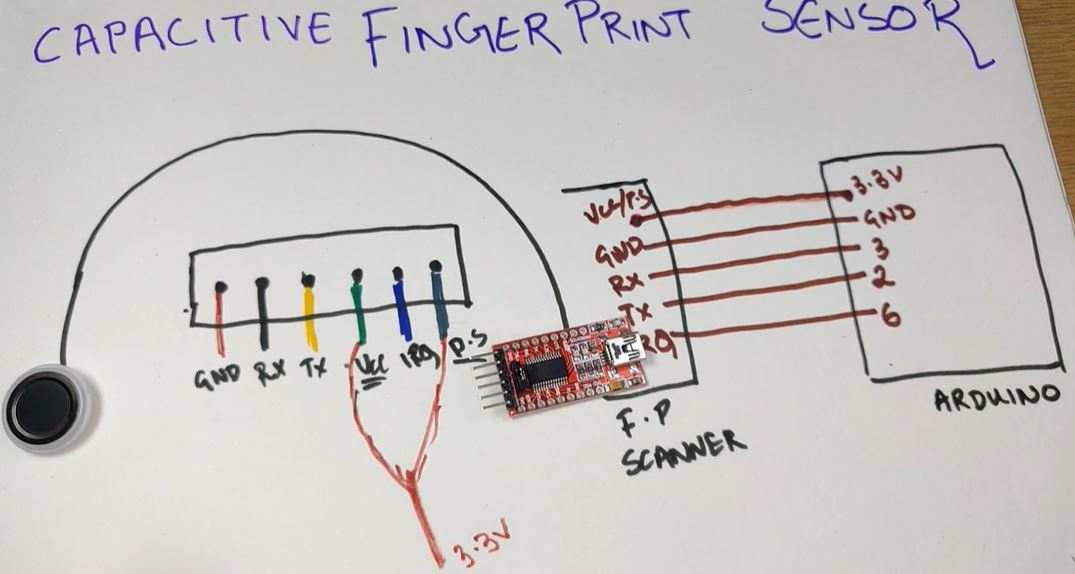 CAPACITIVE FINGER PRINT SENSOR
GND RX TX VCC IRQ P.S
3.3V
VCC/P.S
GND
RX
TX
F.P
SCANNER
3.3V
GND
3
2
6
ARDUINO